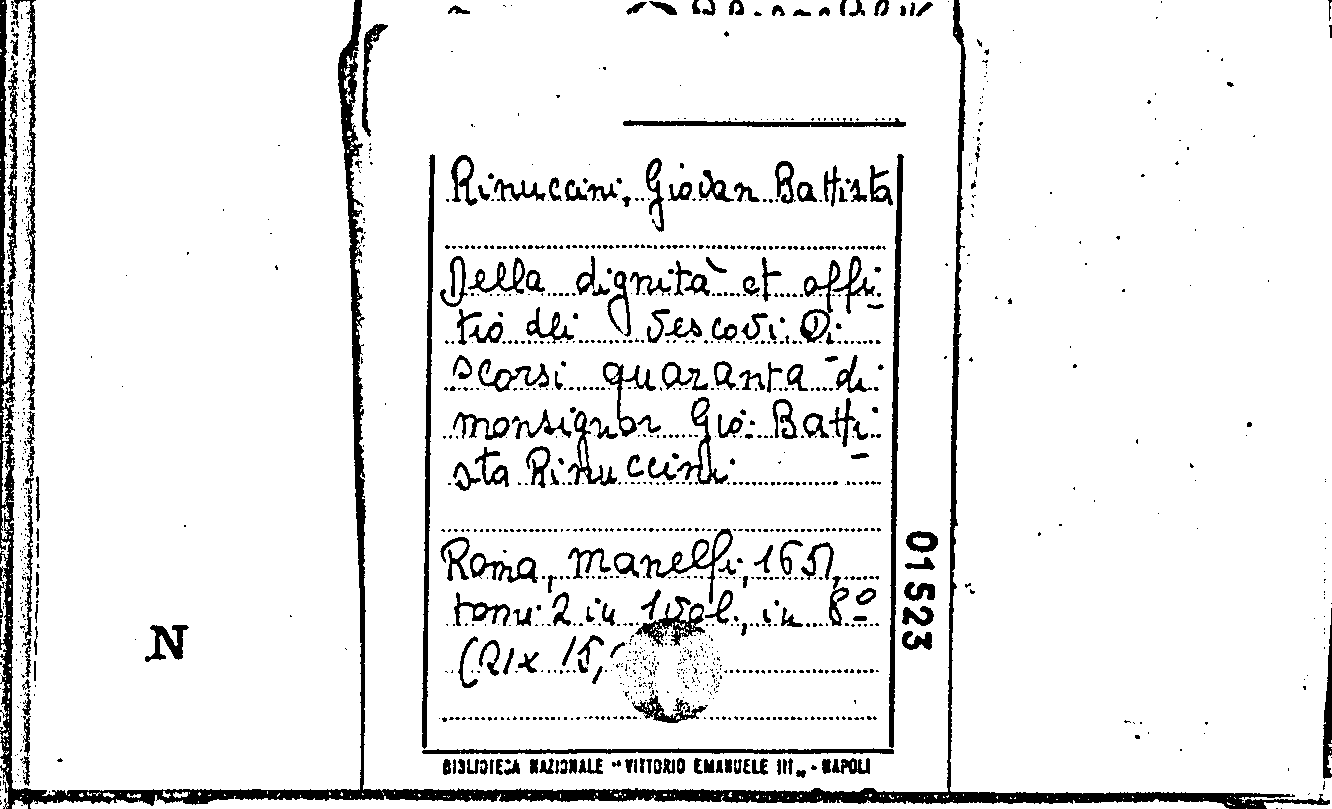 Rinuccini, Giovan Battista
Della dignità et offi-
tio dei Vescovi. Di-
scorsi quaranta di
monsignor Gio: Batti-
sta Rinuccini
Roma, Manelfi, 1651,
tomi 2 in 1 vol., in 8º
(21x 15,
01523
N
BIBLIOTECA NAZIONALE "VITTORIO EMANUELE III" - NAPOLI